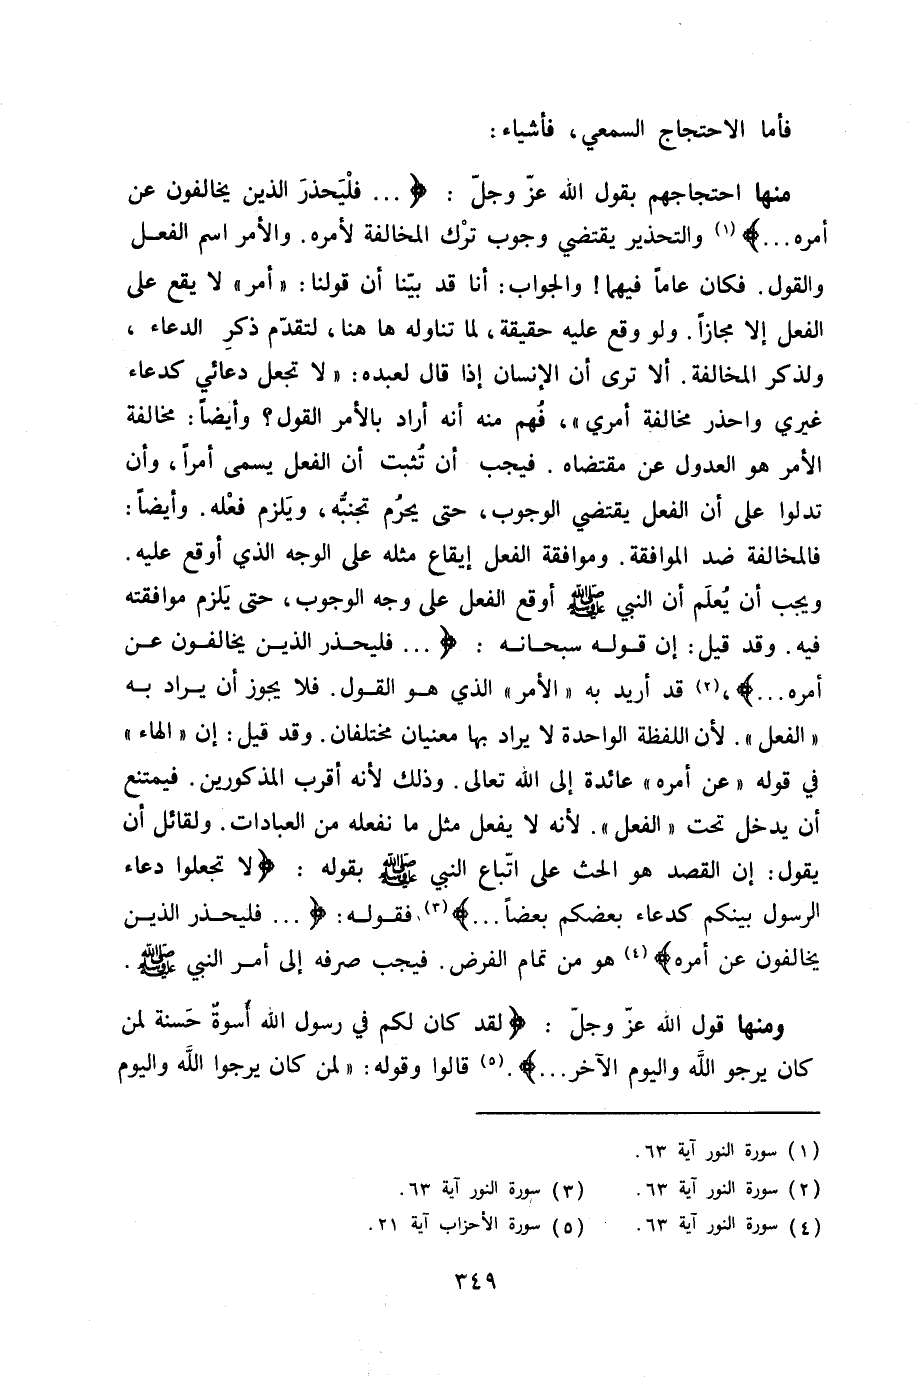 فأما الاحتجاج السمعي، فأشياء:
منها احتجاجهم بقول الله عزّ وجلّ : ﴿ ... فلْيَحذرَ الذين يخالفون عن
أمره...﴾(١) والتحذير يقتضي وجوب ترْك المخالفة لأمره. والأمر اسم الفعل
والقول. فكان عاماً فيهما! والجواب: أنا قد بيّنا أن قولنا: «أمر» لا يقع على
الفعل إلا مجازاً. ولو وقع عليه حقيقة، لما تناوله ها هنا، لتقدّم ذكرِ الدعاء ،
ولذكر المخالفة. ألا ترى أن الإنسان إذا قال لعبده: «لا تجعل دعائي كدعاء
غيري واحذر مخالفة أمري»، فُهم منه أنه أراد بالأمر القول؟ وأيضاً: مخالفة
الأمر هو العدول عن مقتضاه . فيجب أن تُثبت أن الفعل يسمى أمراً، وأن
تدلوا على أن الفعل يقتضي الوجوب، حتى يحرُم تجنبُّه، ويَلزم فعْله. وأيضاً:
فالمخالفة ضد الموافقة. وموافقة الفعل إيقاع مثله على الوجه الذي أوقع عليه.
ويجب أن يُعلَم أن النبي ﷺ أوقع الفعل على وجه الوجوب، حتى يَلزم موافقته
فيه. وقد قيل: إن قوله سبحانه : ﴿ ... فليحذر الذين يخالفون عن
أمره...﴾،(٢) قد أريد به «الأمر» الذي هو القول. فلا يجوز أن يراد به
«الفعل». لأن اللفظة الواحدة لا يراد بها معنيان مختلفان. وقد قيل: إن «الهاء»
في قوله «عن أمره» عائدة إلى الله تعالى. وذلك لأنه أقرب المذكورين. فيمتنع
أن يدخل تحت «الفعل». لأنه لا يفعل مثل ما نفعله من العبادات. ولقائل أن
يقول: إن القصد هو الحث على اتّباع النبي ﷺ بقوله : ﴿لا تجعلوا دعاء
الرسول بينكم كدعاء بعضكم بعضاً...﴾(٣). فقوله: ﴿ ... فليحذر الذين
يخالفون عن أمره﴾(٤) هو من تمام الفرض. فيجب صرفه إلى أمر النبي ﷺ .
ومنها قول الله عزّ وجلّ : ﴿لقد كان لكم في رسول الله أُسوةٌ حَسنة لمن
كان يرجو اللَّه واليوم الآخر...﴾.(٥) قالوا وقوله: «لمن كان يرجوا اللَّه واليوم
(١) سورة النور آية ٦٣.
(٢) سورة النور آية ٦٣. (٣) سورة النور آية ٦٣.
(٤) سورة النور آية ٦٣. (٥) سورة الأحزاب آية ٢١.
٣٤٩